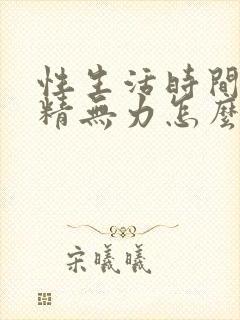 性生活時間
精無力怎麼
宋曦曦